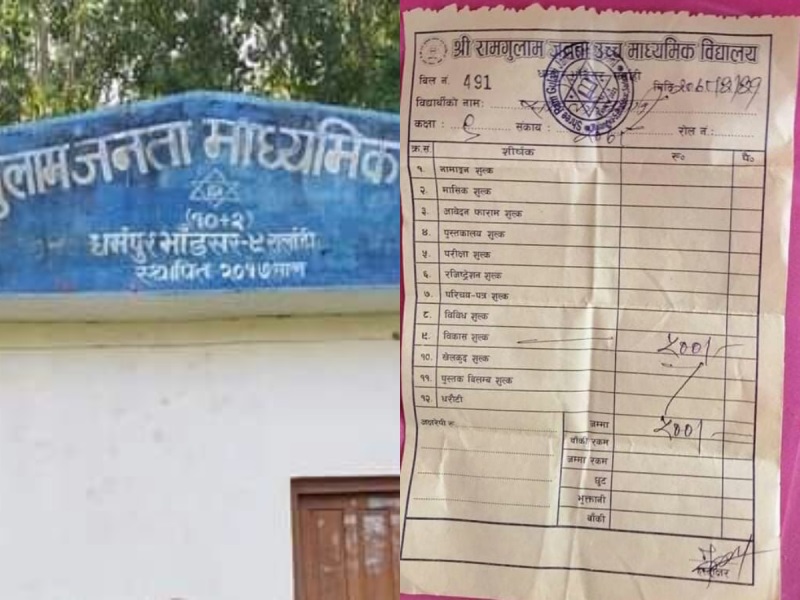 गुलाम जनता माध्यमिक
(१०+२)
धर्मपुर भाँडसर-९ सर्लाही
स्थापित २०१७ साल
श्री रामगुलाम जनता उच्च माध्यमिक विद्यालय
बिल नं. 491
मिति:
विद्यार्थीको नाम:
कक्षा: ९ संकाय: रोल नं:
क्र.सं. शीर्षक रू० पै.
१. नामाङ्कन शुल्क
२. मासिक शुल्क
३. आवेदन फाराम शुल्क
४. पुस्तकालय शुल्क
५. परीक्षा शुल्क
६. रजिष्ट्रेसन शुल्क
७. परिचय-पत्र शुल्क
८. विविध शुल्क
९. विकास शुल्क ५००/-
१०. खेलकुद शुल्क
११. पुस्तक बिलम्ब शुल्क
१२. धरौटी
अक्षरेपी रु. जम्मा ५००/-
बाँकी रकम
जम्मा रकम
छुट
भुक्तानी
बाँकी
हस्ताक्षर